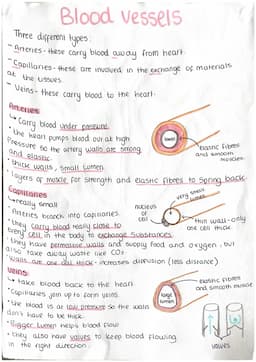 Blood vessels
Three different types:
- Arteries - these carry blood away from heart
- Capillaries - these are involved in the exchange of materials
at the tissues.
- Veins - these carry blood to the heart.
Arteries
↳ Carry blood under pressure
• the heart pumps blood out at high
pressure so the artery walls are strong
and elastic.
• thick walls, small lumen.
layers of muscle for strength and elastic fibres to spring back.
lumen
elastic fibres
and smooth
muscles.
Capillaries
↳ really small
• Arteries branch into capillaries.
• they carry blood really close to
every cell in the body to exchange substances.
• they have permeable walls and supply food and oxygen, but
also take away waste like CO2
• walls are one cell thick - increases diffusion (less distance)
very small lumen
nucleus
of
cell
thin wall - only
one cell thick.
Veins
• take blood back to the heart
• capillaries join up to form veins.
• the blood is at low pressure so the walls
don't have to be thick.
• Bigger lumen helps blood flow
• they also have valves to keep blood flowing
in the right direction.
large
lumen
elastic fibres
and smooth muscle
valves